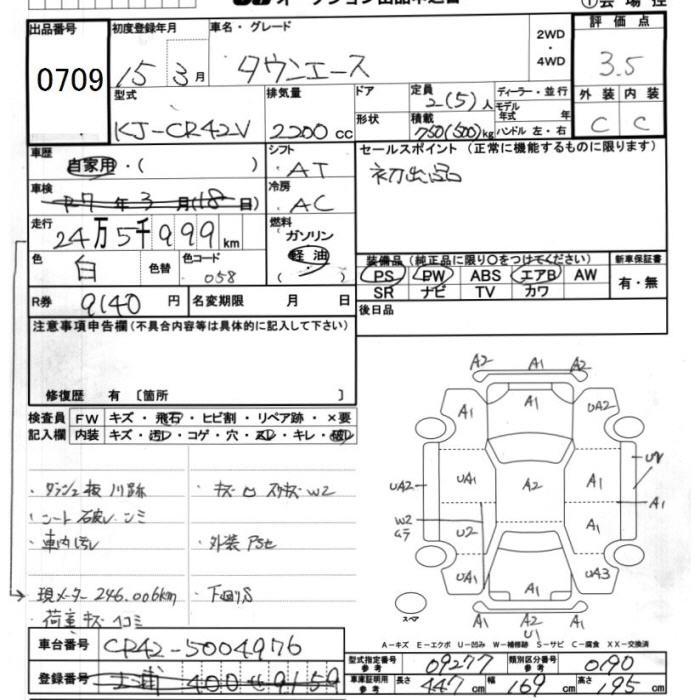 出品番号
0709
初度登録年月
15年 3月
車名・グレード
タウンエース
2WD
・
4WD
評価点
3.5
外装 内装
C C
型式
KJ-CR42V
排気量
2200 cc
ドア
形状
定員
2(5)人
積載
750(500)kg
ディーラー・並行
モデル年式 年
ハンドル 左・右
車歴
自家用・( )
シフト
AT
セールスポイント（正常に機能するものに限ります）
初出品
車検
R7年 3月(18日)
冷房
AC
走行
24万5千999km
燃料
ガソリン
軽油
( )
色
白
色替
色コード
058
装備品（純正品に限り○をつけてください）
PS PW ABS エアB AW
SR ナビ TV カワ
新車保証書
有・無
R券
9140円
名変期限 月 日
後日品
注意事項申告欄(不具合内容等は具体的に記入して下さい)
修復歴 有 〔箇所 〕
検査員記入欄
FW キズ・飛石・ヒビ割・リペア跡・×要
内装 キズ・汚レ・コゲ・穴・スレ・キレ・破レ
・車内汚レ
・外装
現メーター 246.006km
・下回りS
A2 A1 A2
A1 A1 UA2
UA2 UA1 A2 A1 A1
W2
U2 A1
UA1 A1 UA3
スペア
A1 A2 A1
U1
A－キズ E－エクボ U－凹み W－補修跡 S－サビ C－腐食 XX－交換済
車台番号
CR42-5004976
登録番号
土浦 400 せ 9159
型式指定番号
参考
09277
類別区分番号
参考
0190
車庫証明用
参考
長さ
447cm
幅
169cm
高さ
195cm